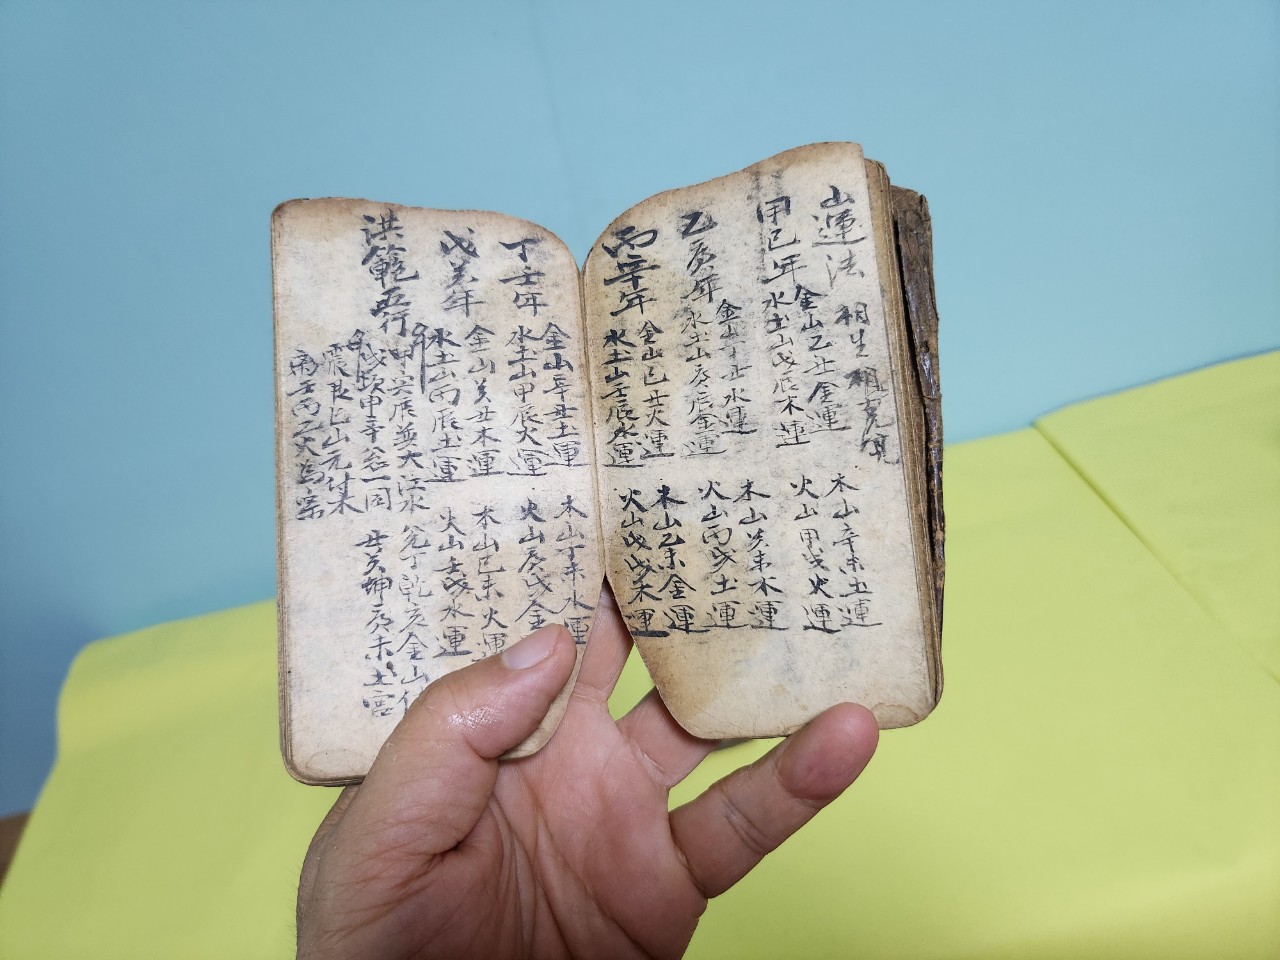 山運法 相生相克見
甲己年 金山乙丑金運 木山辛未土運
水土山戊辰木運 火山甲戌火運
乙庚年 金山丁丑水運 木山癸未木運
水土山庚辰金運 火山丙戌土運
丙辛年 金山己丑火運 木山乙未金運
水土山壬辰水運 火山戊戌木運
丁壬年 金山辛丑土運 木山丁未水運
水土山甲辰火運 火山庚戌金
戊癸年 金山癸丑木運 木山己未火運
水土山丙辰土運 火山壬戌水運
洪範五行 甲寅辰巽大江水 兌丁乾亥金山
戌坎申辛同 丑癸坤庚未土宮
震艮巳山元付木
离壬丙乙火為宗